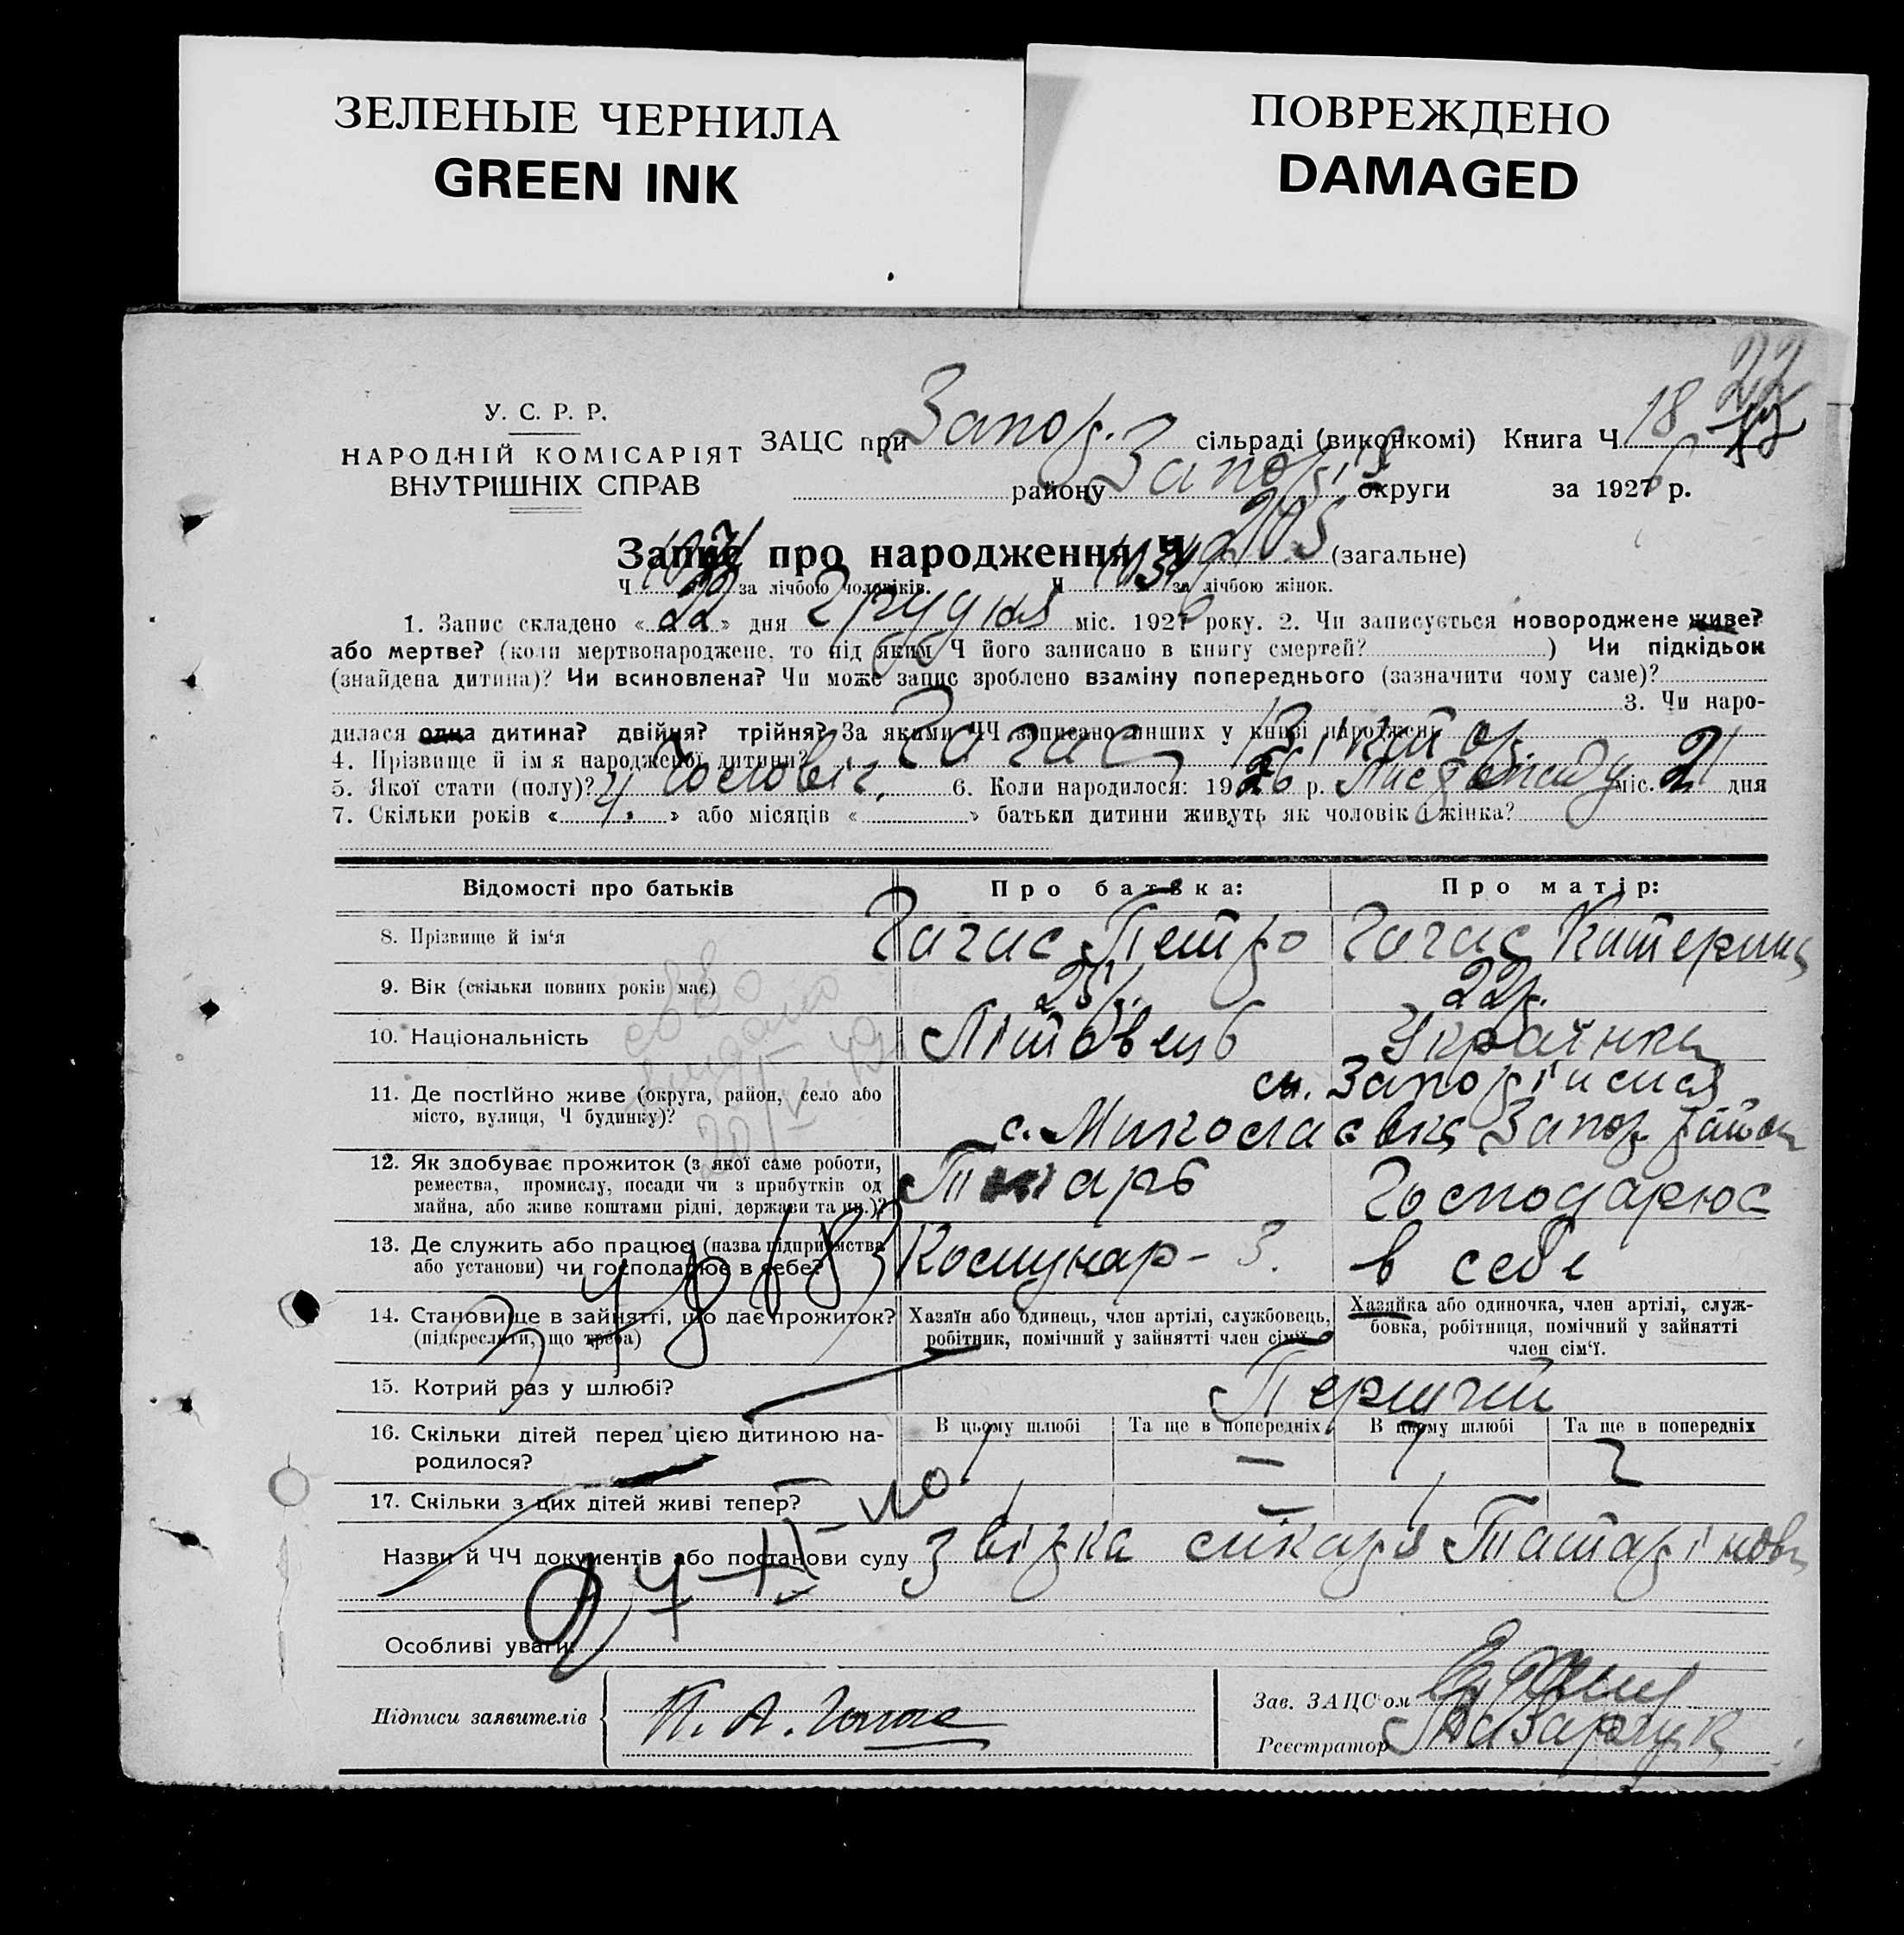 ЗЕЛЕНЫЕ ЧЕРНИЛА
GREEN INK
ПОВРЕЖДЕНО
DAMAGED
22
У. С. Р. Р.
НАРОДНІЙ КОМІСАРІЯТ
ВНУТРІШНІХ СПРАВ
ЗАЦС при Запор. сільраді (виконкомі) Книга Ч 18
району Запоріз округи за 1926 р.
Запис про народження Ч 2105 (загальне)
Ч за лічбою чоловіків. Ч за лічбою жінок.
1. Запис складено « 22 » дня Грудня міс. 1926 року. 2. Чи записується новороджене живе?
або мертве? (коли мертвонароджене, то під яким Ч його записано в книгу смертей? ) Чи підкідьок
(знайдена дитина)? Чи всиновлена? Чи може запис зроблено взаміну попереднього (зазначити чому саме)?
3. Чи наро-
дилася одна дитина? двійня? трійня? За якими ЧЧ записано инших у книзі народжені
4. Прізвище й імя народженої дитини? Гагас Віктор
5. Якої стати (полу)? Чоловіч. 6. Коли народилося: 1926 р. Листопаду міс. 21 дня
7. Скільки років « » або місяців « » батьки дитини живуть як чоловік і жінка?
Відомості про батьків Про батька: Про матір:
8. Прізвище й ім'я Гагас Петро Гагас Катерина
9. Вік (скільки повних років має) 25р. 22р.
10. Національність Літовець Українка
11. Де постійно живе (округа, район, село або
місто, вулиця, Ч будинку)?
ст. Запоріжжя
с. Миколаєвка Запор. район
12. Як здобуває прожиток (з якої саме роботи,
ремества, промислу, посади чи з прибутків од
майна, або живе коштами рідні, держави та ин.)?
Господарює
13. Де служить або працює (назва підприємства
або установи) чи господарює в себе?
Комунар - З. в себе
14. Становище в зайнятті, що дає прожиток?
(підкреслити, що треба)
Хазяїн або одинець, член артілі, службовець,
робітник, помічний у зайнятті член сім'ї.
Хазяйка або одиночка, член артілі, служ-
бовка, робітниця, помічний у зайнятті
член сім'ї.
15. Котрий раз у шлюбі? Перший
16. Скільки дітей перед цією дитиною на-
родилося?
В цьому шлюбі Та ще в попередніх В цьому шлюбі Та ще в попередніх
1 — 1
17. Скільки з цих дітей живі тепер?
Назви й ЧЧ документів або постанови суду Звірка
Особливі уваги:
Підписи заявителів П. А. Гагас
Зав. ЗАЦС'ом
Реєстратор Назарчук